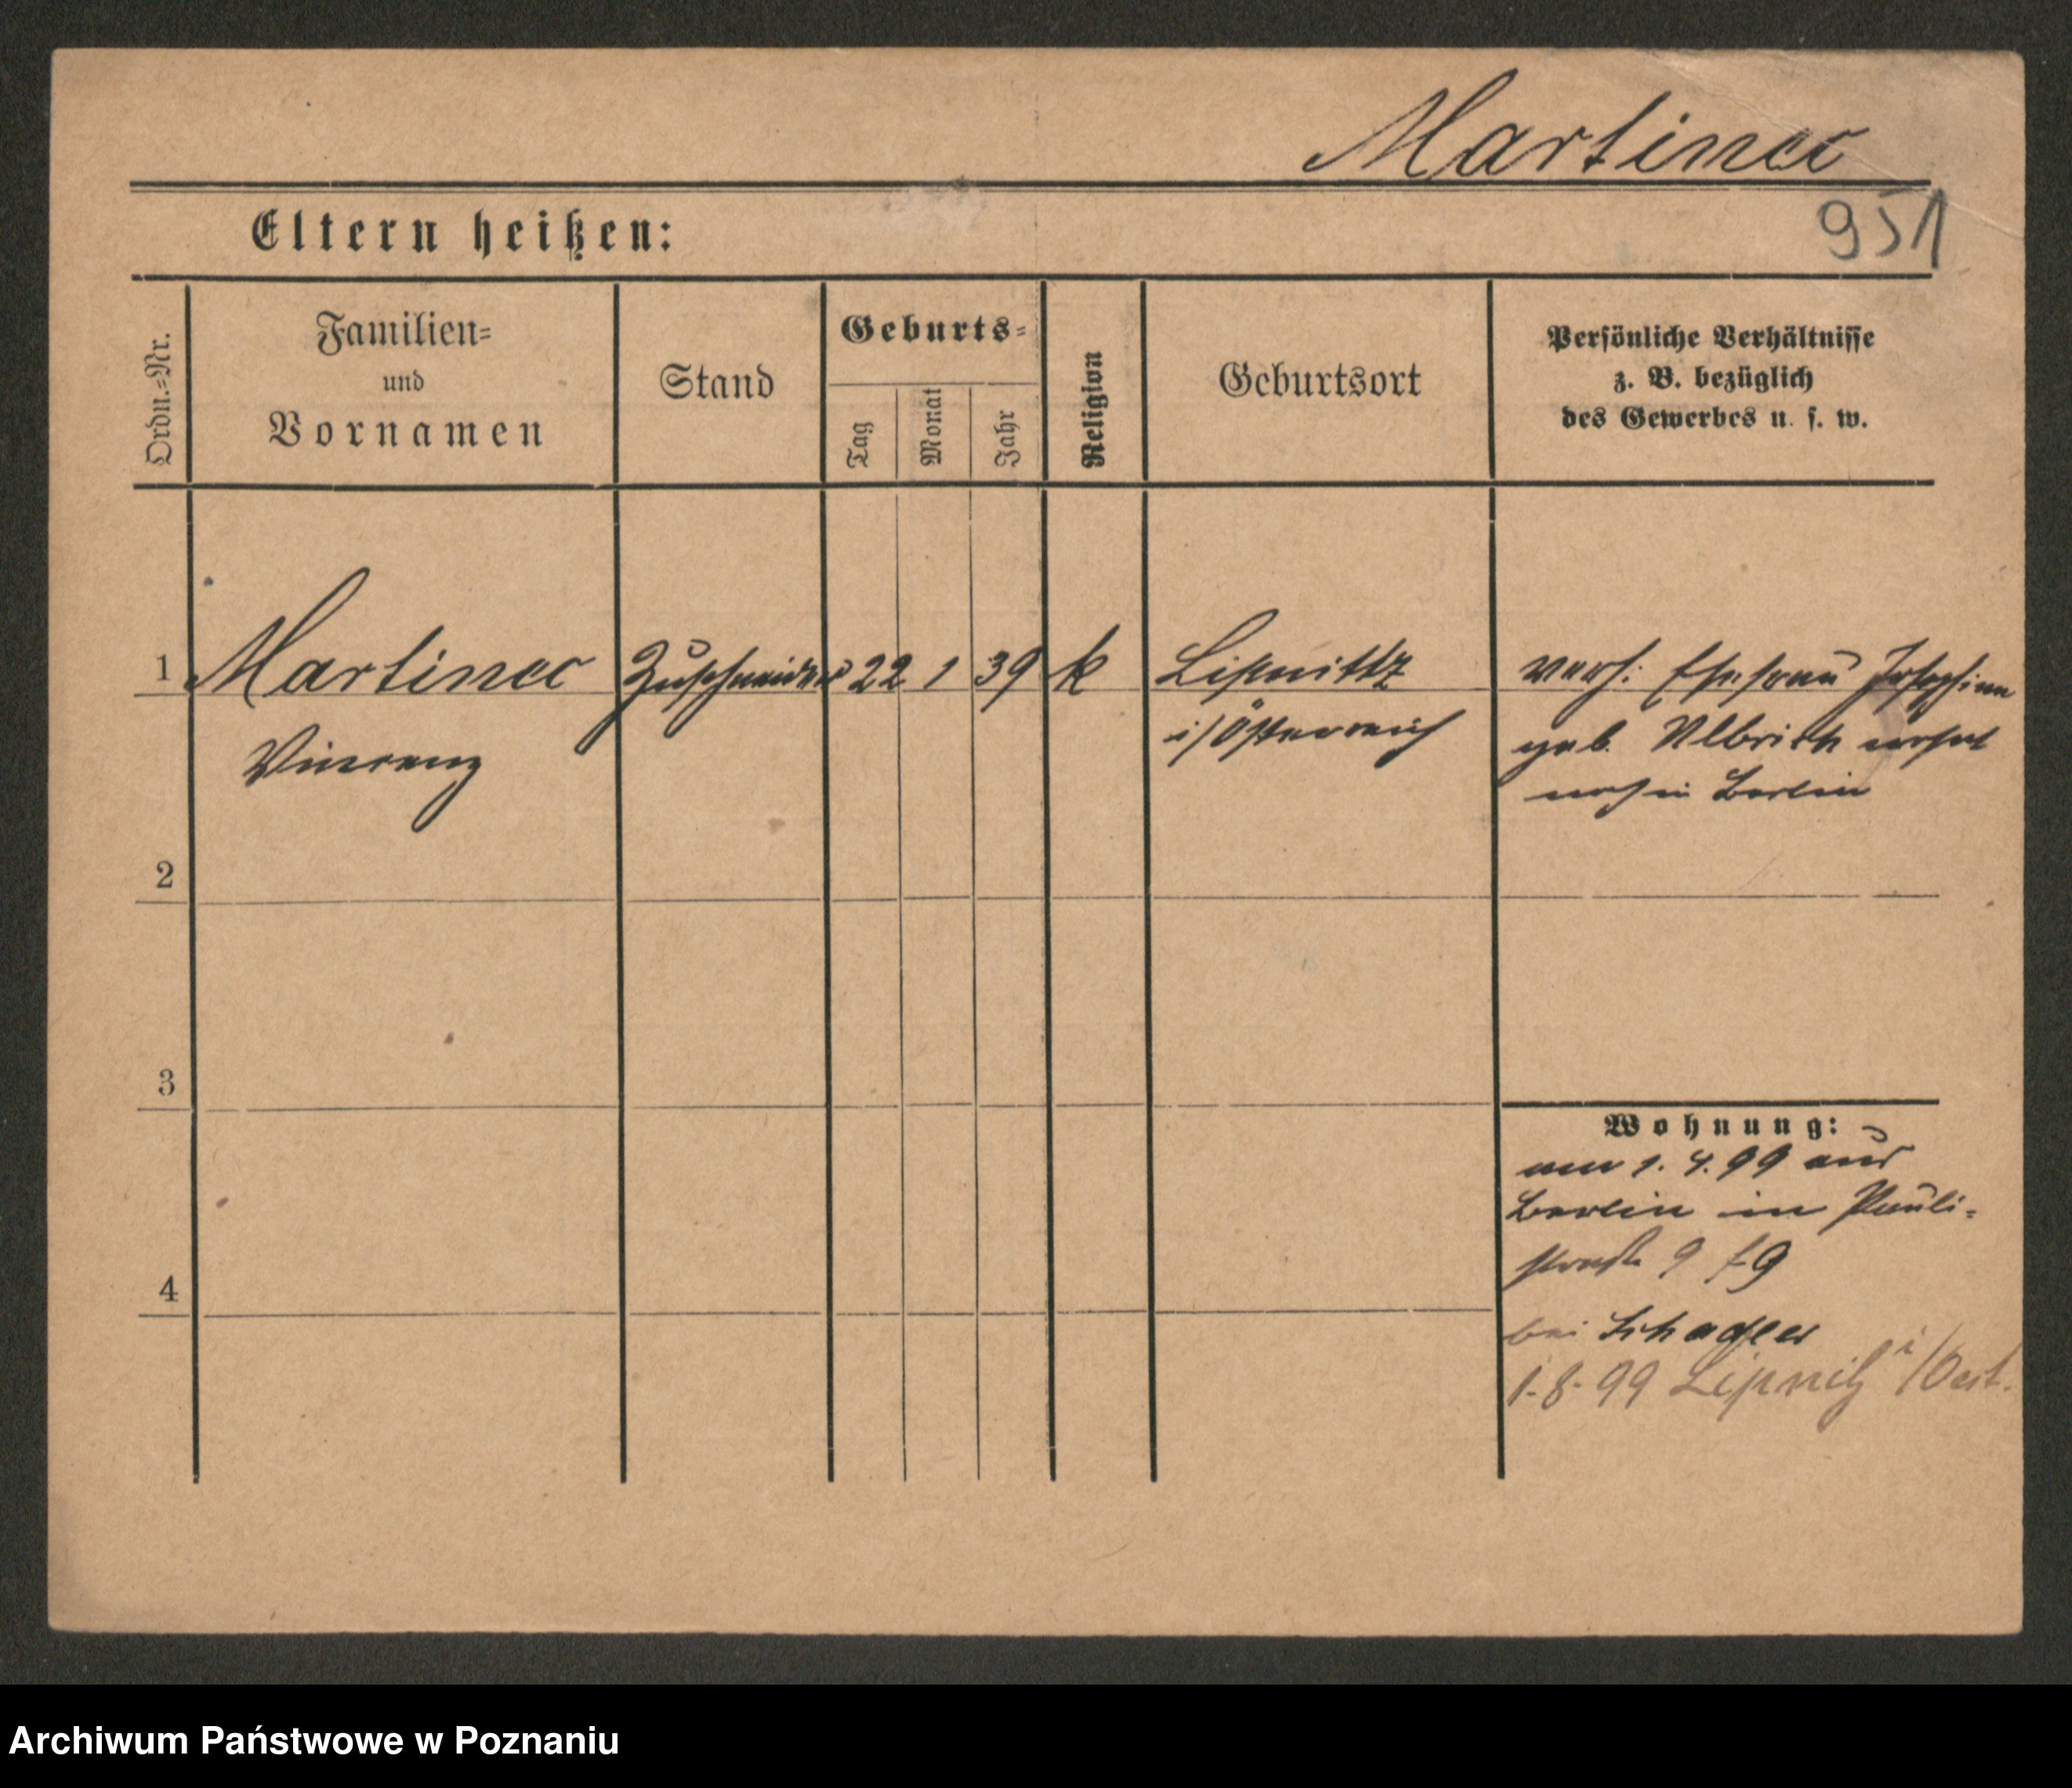 Martinec
951
Eltern heißen:
Ordn.=Nr.
Familien=
und
Vornamen
Stand
Geburts=
Tag
Monat
Jahr
Religion
Geburtsort
Persönliche Verhältnisse
z. B. bezüglich
des Gewerbes u. s. w.
1 Martinec Zuschneider 22 1 39 k Lipnittz verh: Ehefrau Josephine
Vincenz i/Österreich geb. Ulbrich wohnt
noch in Berlin
2
3
4
Wohnung:
am 1. 4. 99 aus
Berlin in Pauli=
kirchstr 9
bei
1-8-99 Lipnitz i/Oest.
Archiwum Państwowe w Poznaniu